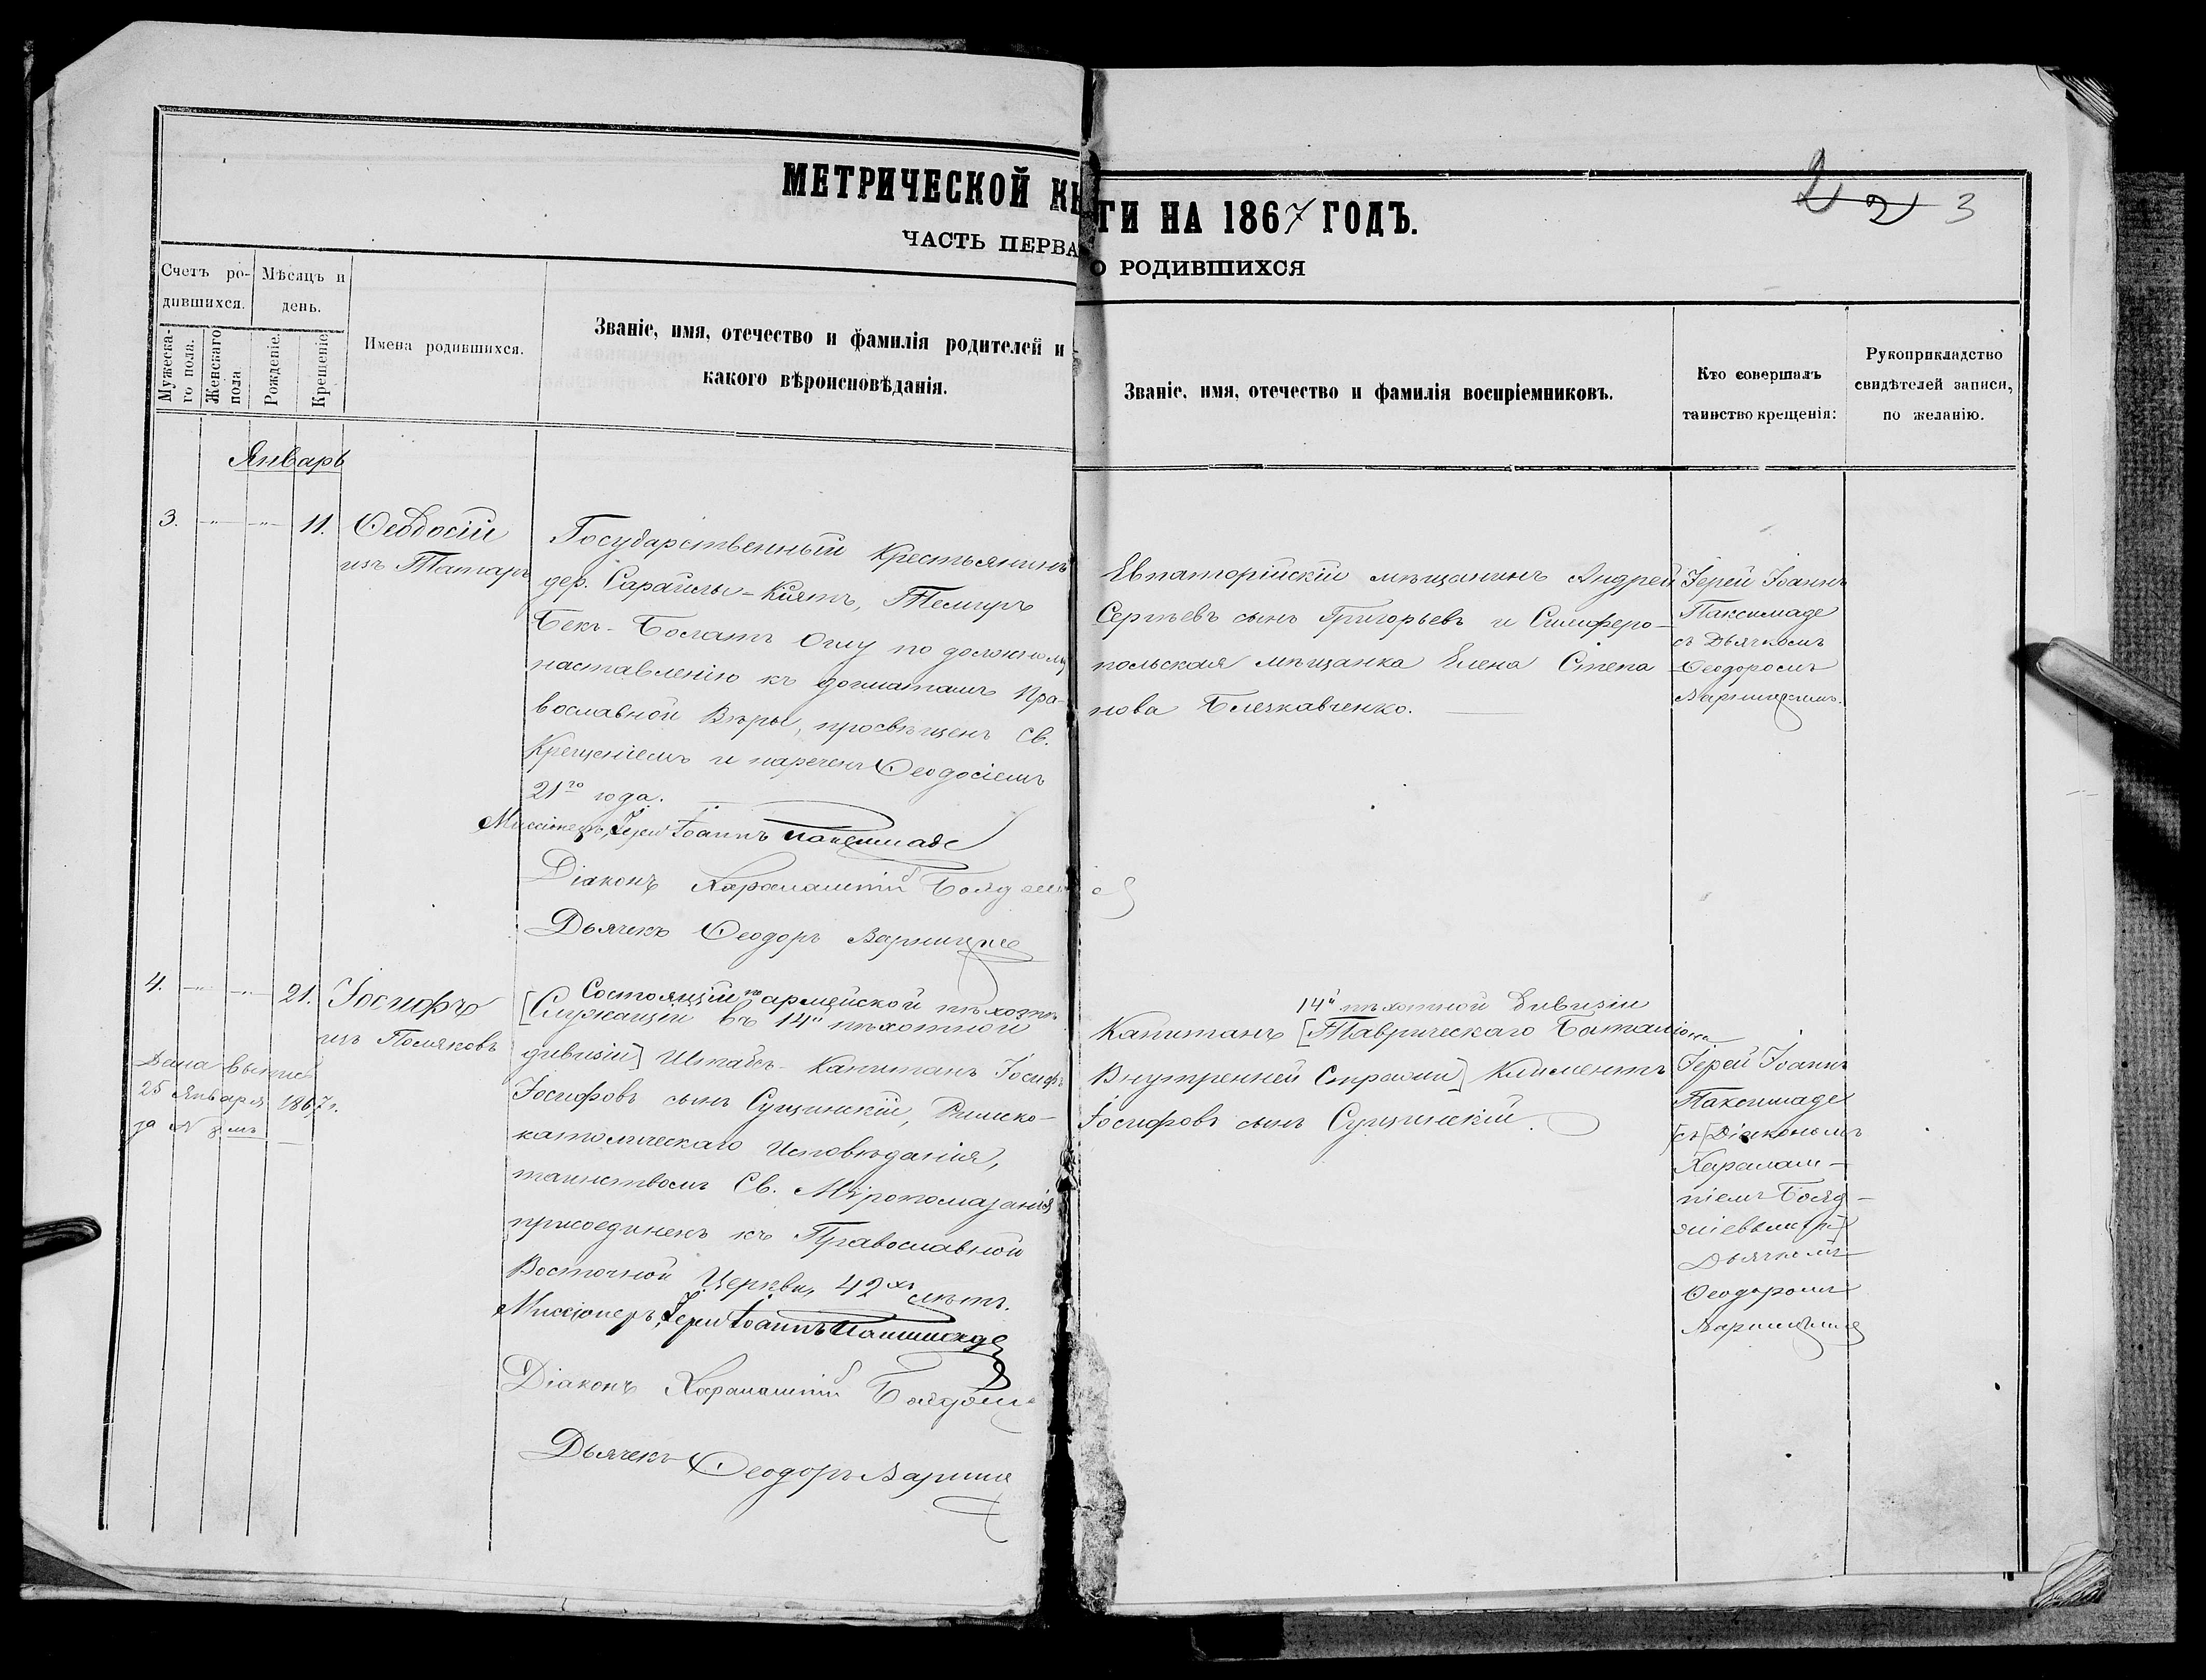 МЕТРИЧЕСКОЙ КН
ГИ НА 1867 ГОДЪ.
2 2 3
ЧАСТЬ ПЕРВА
О РОДИВШИХСЯ
Счетъ ро-
дившихся.
Мѣсяцъ и
день.
Мужеска-
го пола.
Женскаго
пола
Рожденіе.
Крещеніе.
Имена родившихся.
Званіе, имя, отечество и фамилія родителей и
какого вѣроисповѣданія.
Званіе, имя, отечество и фамилія воспріемниковъ.
Кто совершалъ
таинство крещенія:
Рукоприкладство
свидѣтелей записи,
по желанію.
Январь
3. -"- -"- 11.
Ѳеодосій
изъ Татаръ
Государственный Крестьянинъ
дер. Сарайлы-Киятъ, Темиръ
Бекъ-Болатъ Оглу по должному
наставленію къ догматамъ Пра-
вославной Вѣры, просвѣщенъ Св.
Крещеніемъ и нареченъ Ѳеодосіемъ
21го года.
Миссіонеръ, Іерей Іоаннъ Паксимаде
Діаконъ Харалампій
Дьячекъ Ѳеодоръ
Евпаторійскій мѣщанинъ Андрей
Сергѣевъ сынъ Григорьевъ и Симферо-
польская мѣщанка Елена Степа
нова
Іерей Іоаннъ
Паксимаде
съ Дьячкомъ
Ѳеодоромъ
4. -"- -"- 21.
Іосифъ
изъ Поляковъ
Дана выпись
25 Января 1867 г.
за N
Состоящій по армейской пѣхотѣ
[Служащій въ 14й пѣхотной
дивизіи] Штабсъ-Капитанъ Іосифъ
Іосифовъ сынъ Сущинскій, Римско-
католическаго Исповѣданія,
таинствомъ Св. Мѵропомазанія
присоединенъ къ Православной
Восточной Церкви, 42хъ лѣтъ.
Миссіонеръ, Іерей Іоаннъ Паксимаде
Діаконъ Харалампій
Дьячекъ Ѳеодоръ
14й пѣхотной дивизіи
Капитанъ [Таврическаго Баталіона
Внутренней Стражи] Климентъ
Іосифовъ сынъ Сущинскій.
Іерей Іоаннъ
Паксимаде
[съ] Діакономъ
Харалам-
піемъ
Дьячкомъ
Ѳеодоромъ